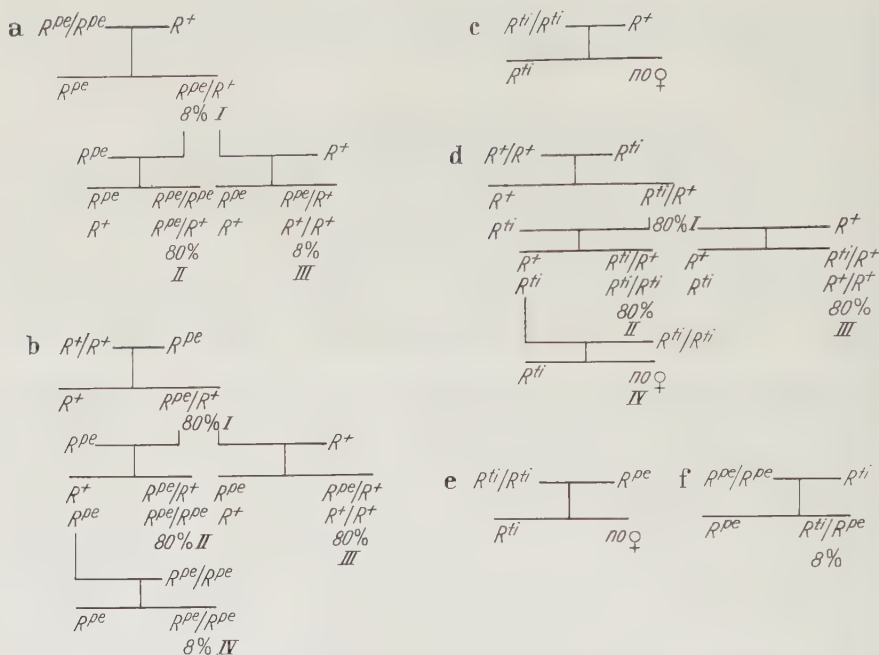 a
R^pe/R^pe R^+
R^pe R^pe/R^+
8% I
R^pe R^+
R^pe R^pe/R^pe R^pe R^pe/R^+
R^+ R^pe/R^+ R^+ R^+/R^+
80% 8%
II III
b
R^+/R^+ R^pe
R^+ R^pe/R^+
80% I
R^pe R^+
R^+ R^pe/R^+ R^pe R^pe/R^+
R^pe R^pe/R^pe R^+ R^+/R^+
80% II 80%
III
R^pe/R^pe
R^pe R^pe/R^pe
8% IV
c
R^ti/R^ti R^+
R^ti no ♀
d
R^+/R^+ R^ti
R^+ R^ti/R^+
R^ti 80% I R^+
R^+ R^ti/R^+ R^+ R^ti/R^+
R^ti R^ti/R^ti R^ti R^+/R^+
80% 80%
II III
R^ti/R^ti
R^ti no ♀
IV
e
R^ti/R^ti R^pe
R^ti no ♀
f
R^pe/R^pe R^ti
R^pe R^ti/R^pe
8%